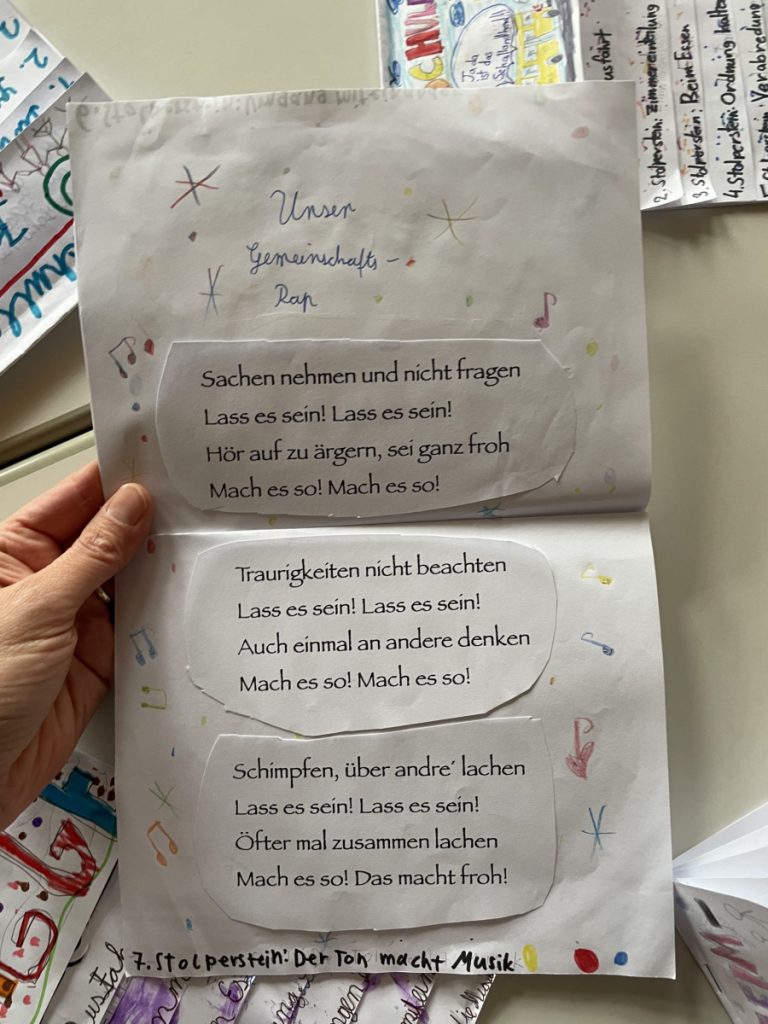 SCHUL
Ja da
ist das
Schullandheim!
usfährt
2. Stolperstein: Zimmereinteilung
3. Stolperstein: Beim Essen
4. Stolperstein: Ordnung halten
Verabredung
6. Stolperstein: Umgang mit
Unser
Gemeinschafts-
Rap
Sachen nehmen und nicht fragen
Lass es sein! Lass es sein!
Hör auf zu ärgern, sei ganz froh
Mach es so! Mach es so!
Traurigkeiten nicht beachten
Lass es sein! Lass es sein!
Auch einmal an andere denken
Mach es so! Mach es so!
Schimpfen, über andre´ lachen
Lass es sein! Lass es sein!
Öfter mal zusammen lachen
Mach es so! Das macht froh!
7. Stolperstein: Der Ton macht Musik